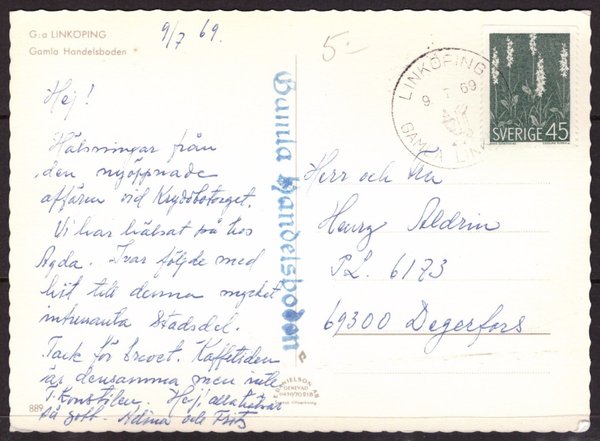 G:a LINKÖPING
Gamla Handelsboden
9/7 69.
5:-
Hej!
Hälsningar från
den nyöppnade
affären vid Kryddbotorget.
Vi har hälsat på hos
Agda. Ivar följde med
hit till denna mycket
intressanta Stadsdel.
Tack för brevet. Kaffetiden
är densamma men inte
Hej' allatihvar
så gott. och Fritz
889
Gamla Handelsboden
LINKÖPING
9 69
GAMLA LINK
SVERIGE 45
Herr och Fru
Henry Aldrin
PL. 6173
69300 Degerfors